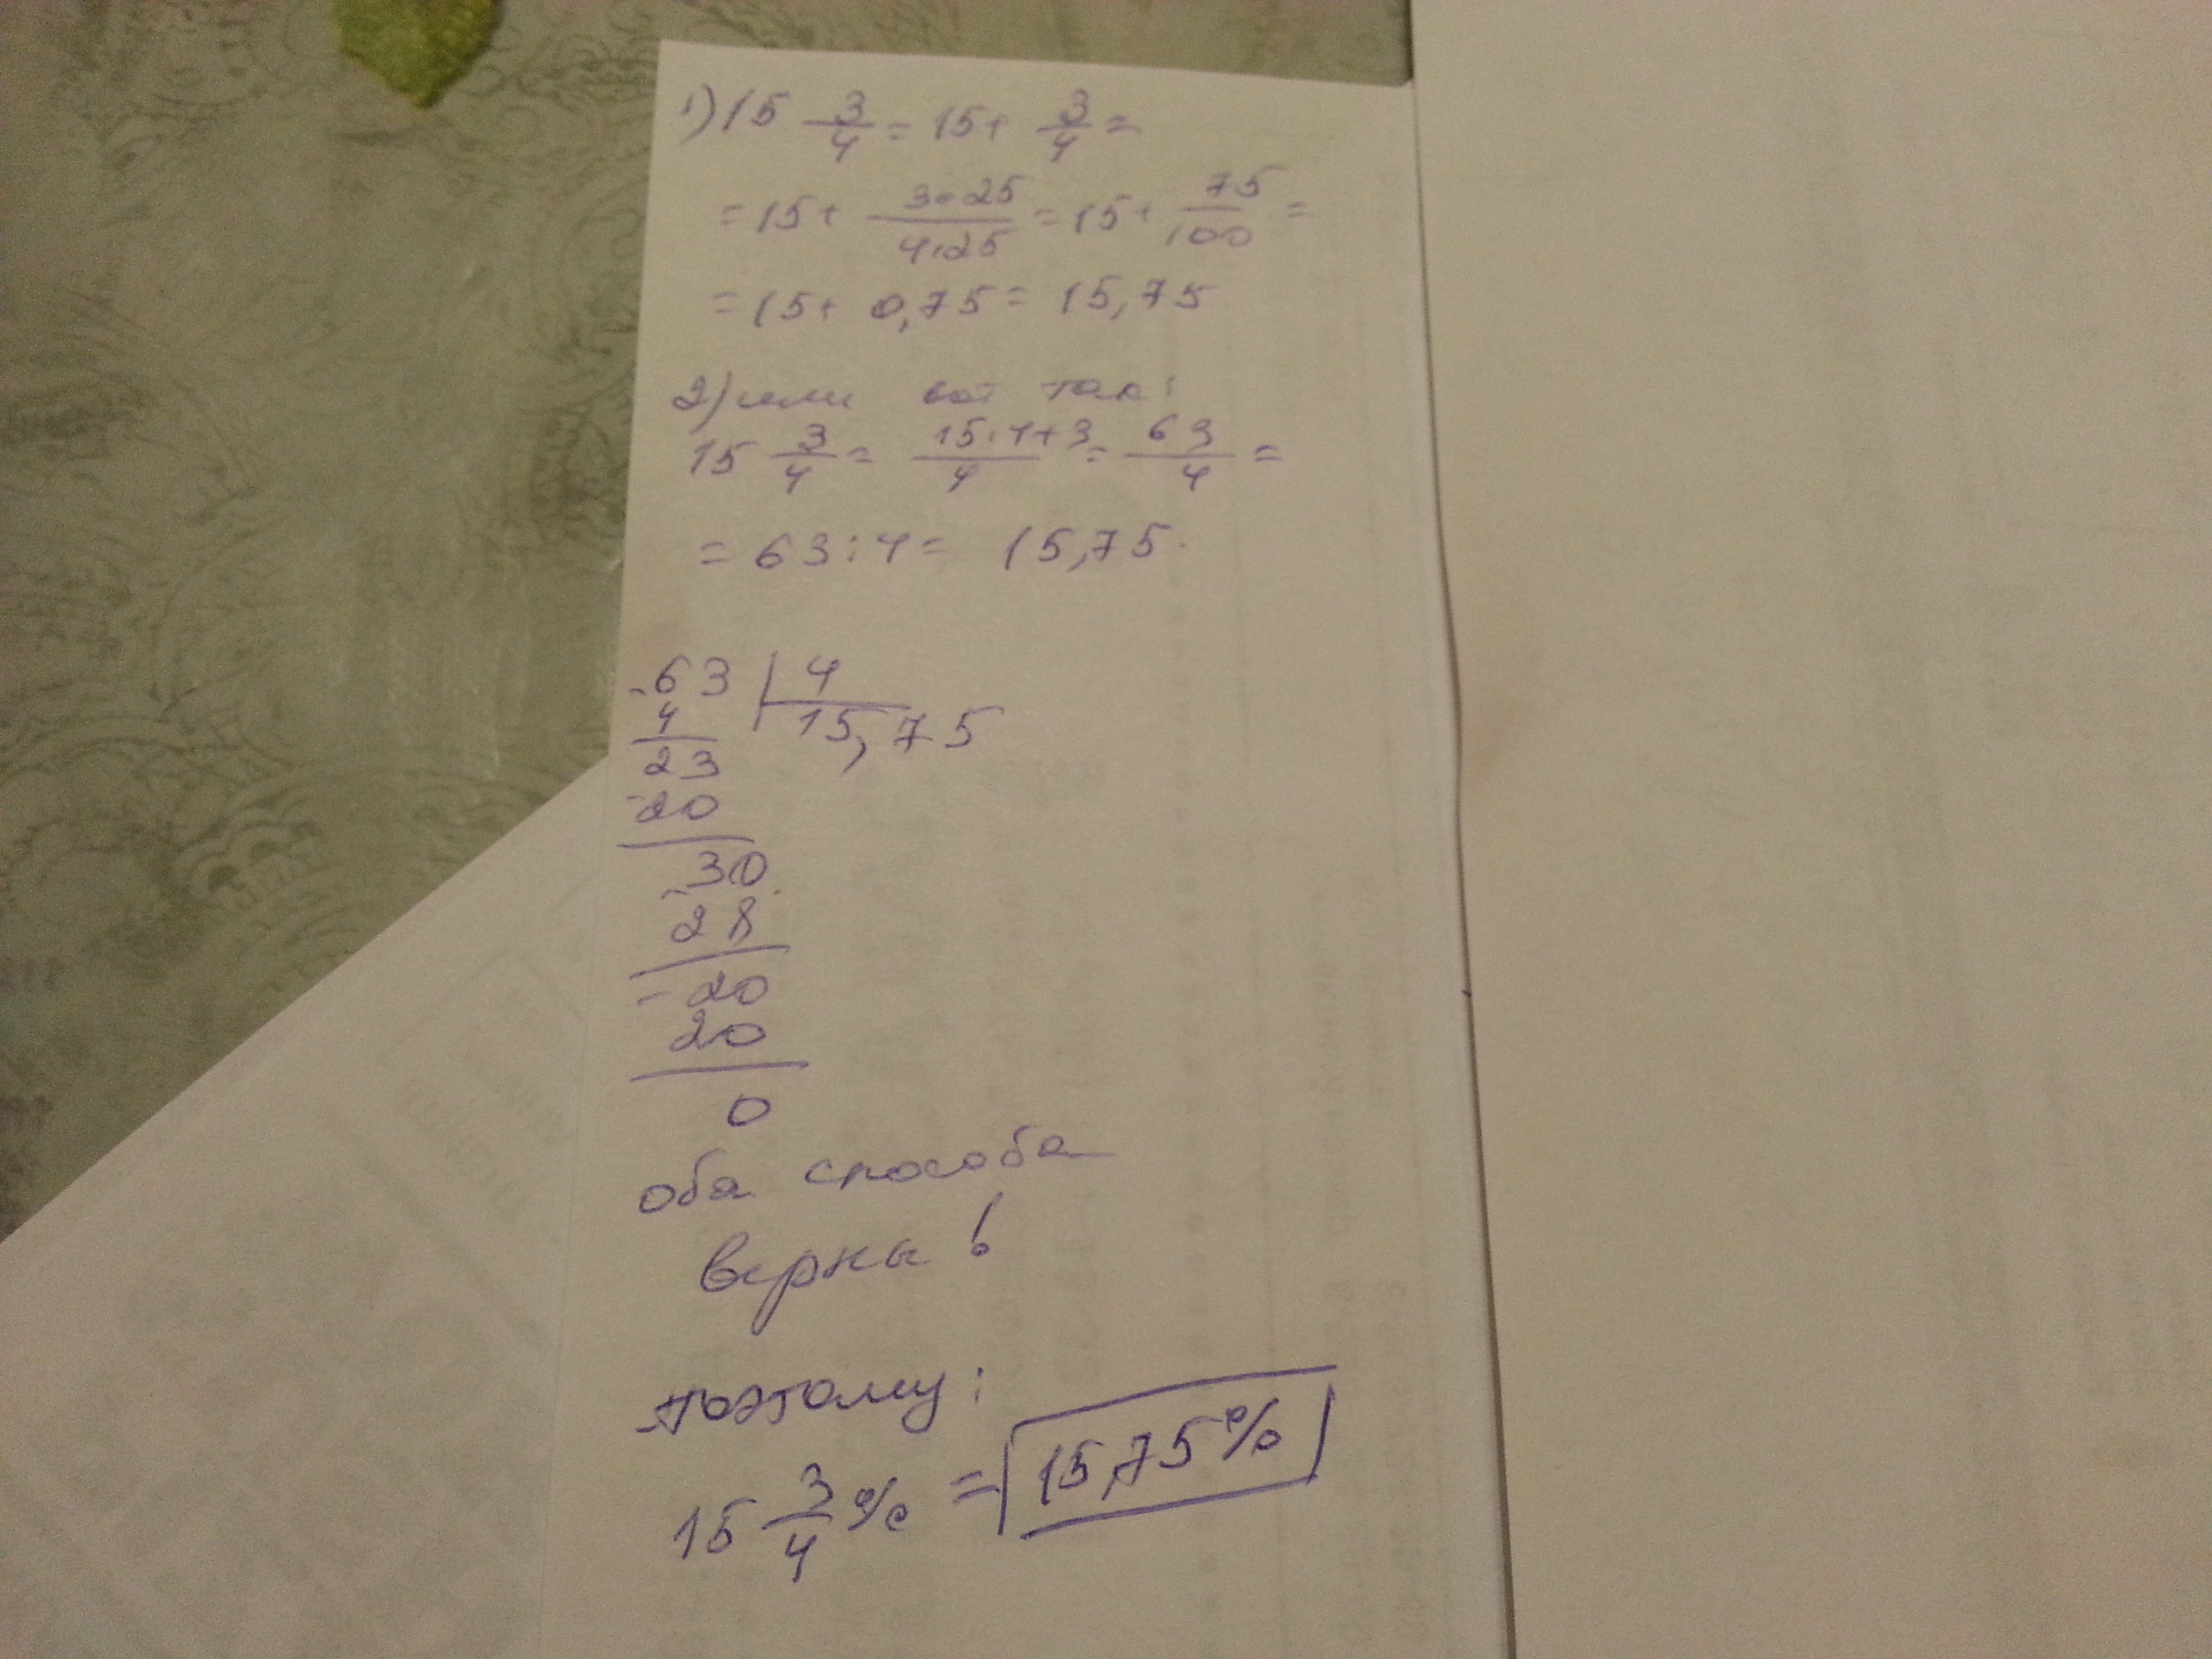 1) 15 3/4 = 15 + 3/4 =
= 15 + 3·25/4·25 = 15 + 75/100 =
= 15 + 0,75 = 15,75
2) или вот так:
15 3/4 = 15·4+3/4 = 63/4 =
= 63:4 = 15,75.
-63 | 4
4 15,75
23
-20
-30
28
-20
20
0
оба способа
верны!
поэтому:
15 3/4 % = 15,75%